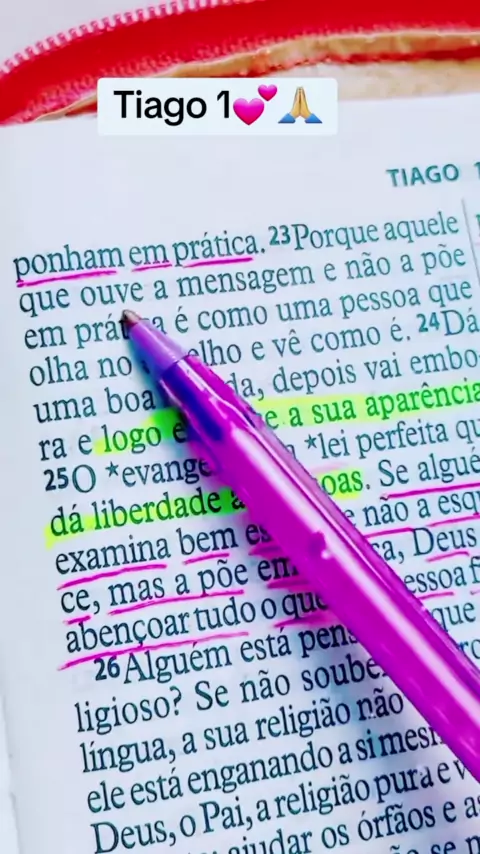 Tiago 1💕🙏
TIAGO 1
ponham em prática. 23Porque aquele
que ouve a mensagem e não a põe
em prática é como uma pessoa que
olha no espelho e vê como é. 24Dá
uma boa da, depois vai embo-
ra e logo e a sua aparência
25O *evange *lei perfeita qu
dá liberdade oas. Se algué
examina bem es e não a esq
ce, mas a põe em ca, Deus
abençoar tudo o que essoa f
26Alguém está pens que
ligioso? Se não soube
língua, a sua religião não
ele está enganando a si mesm
Deus, o Pai, a religião pura e v
ajudar os órfãos e as